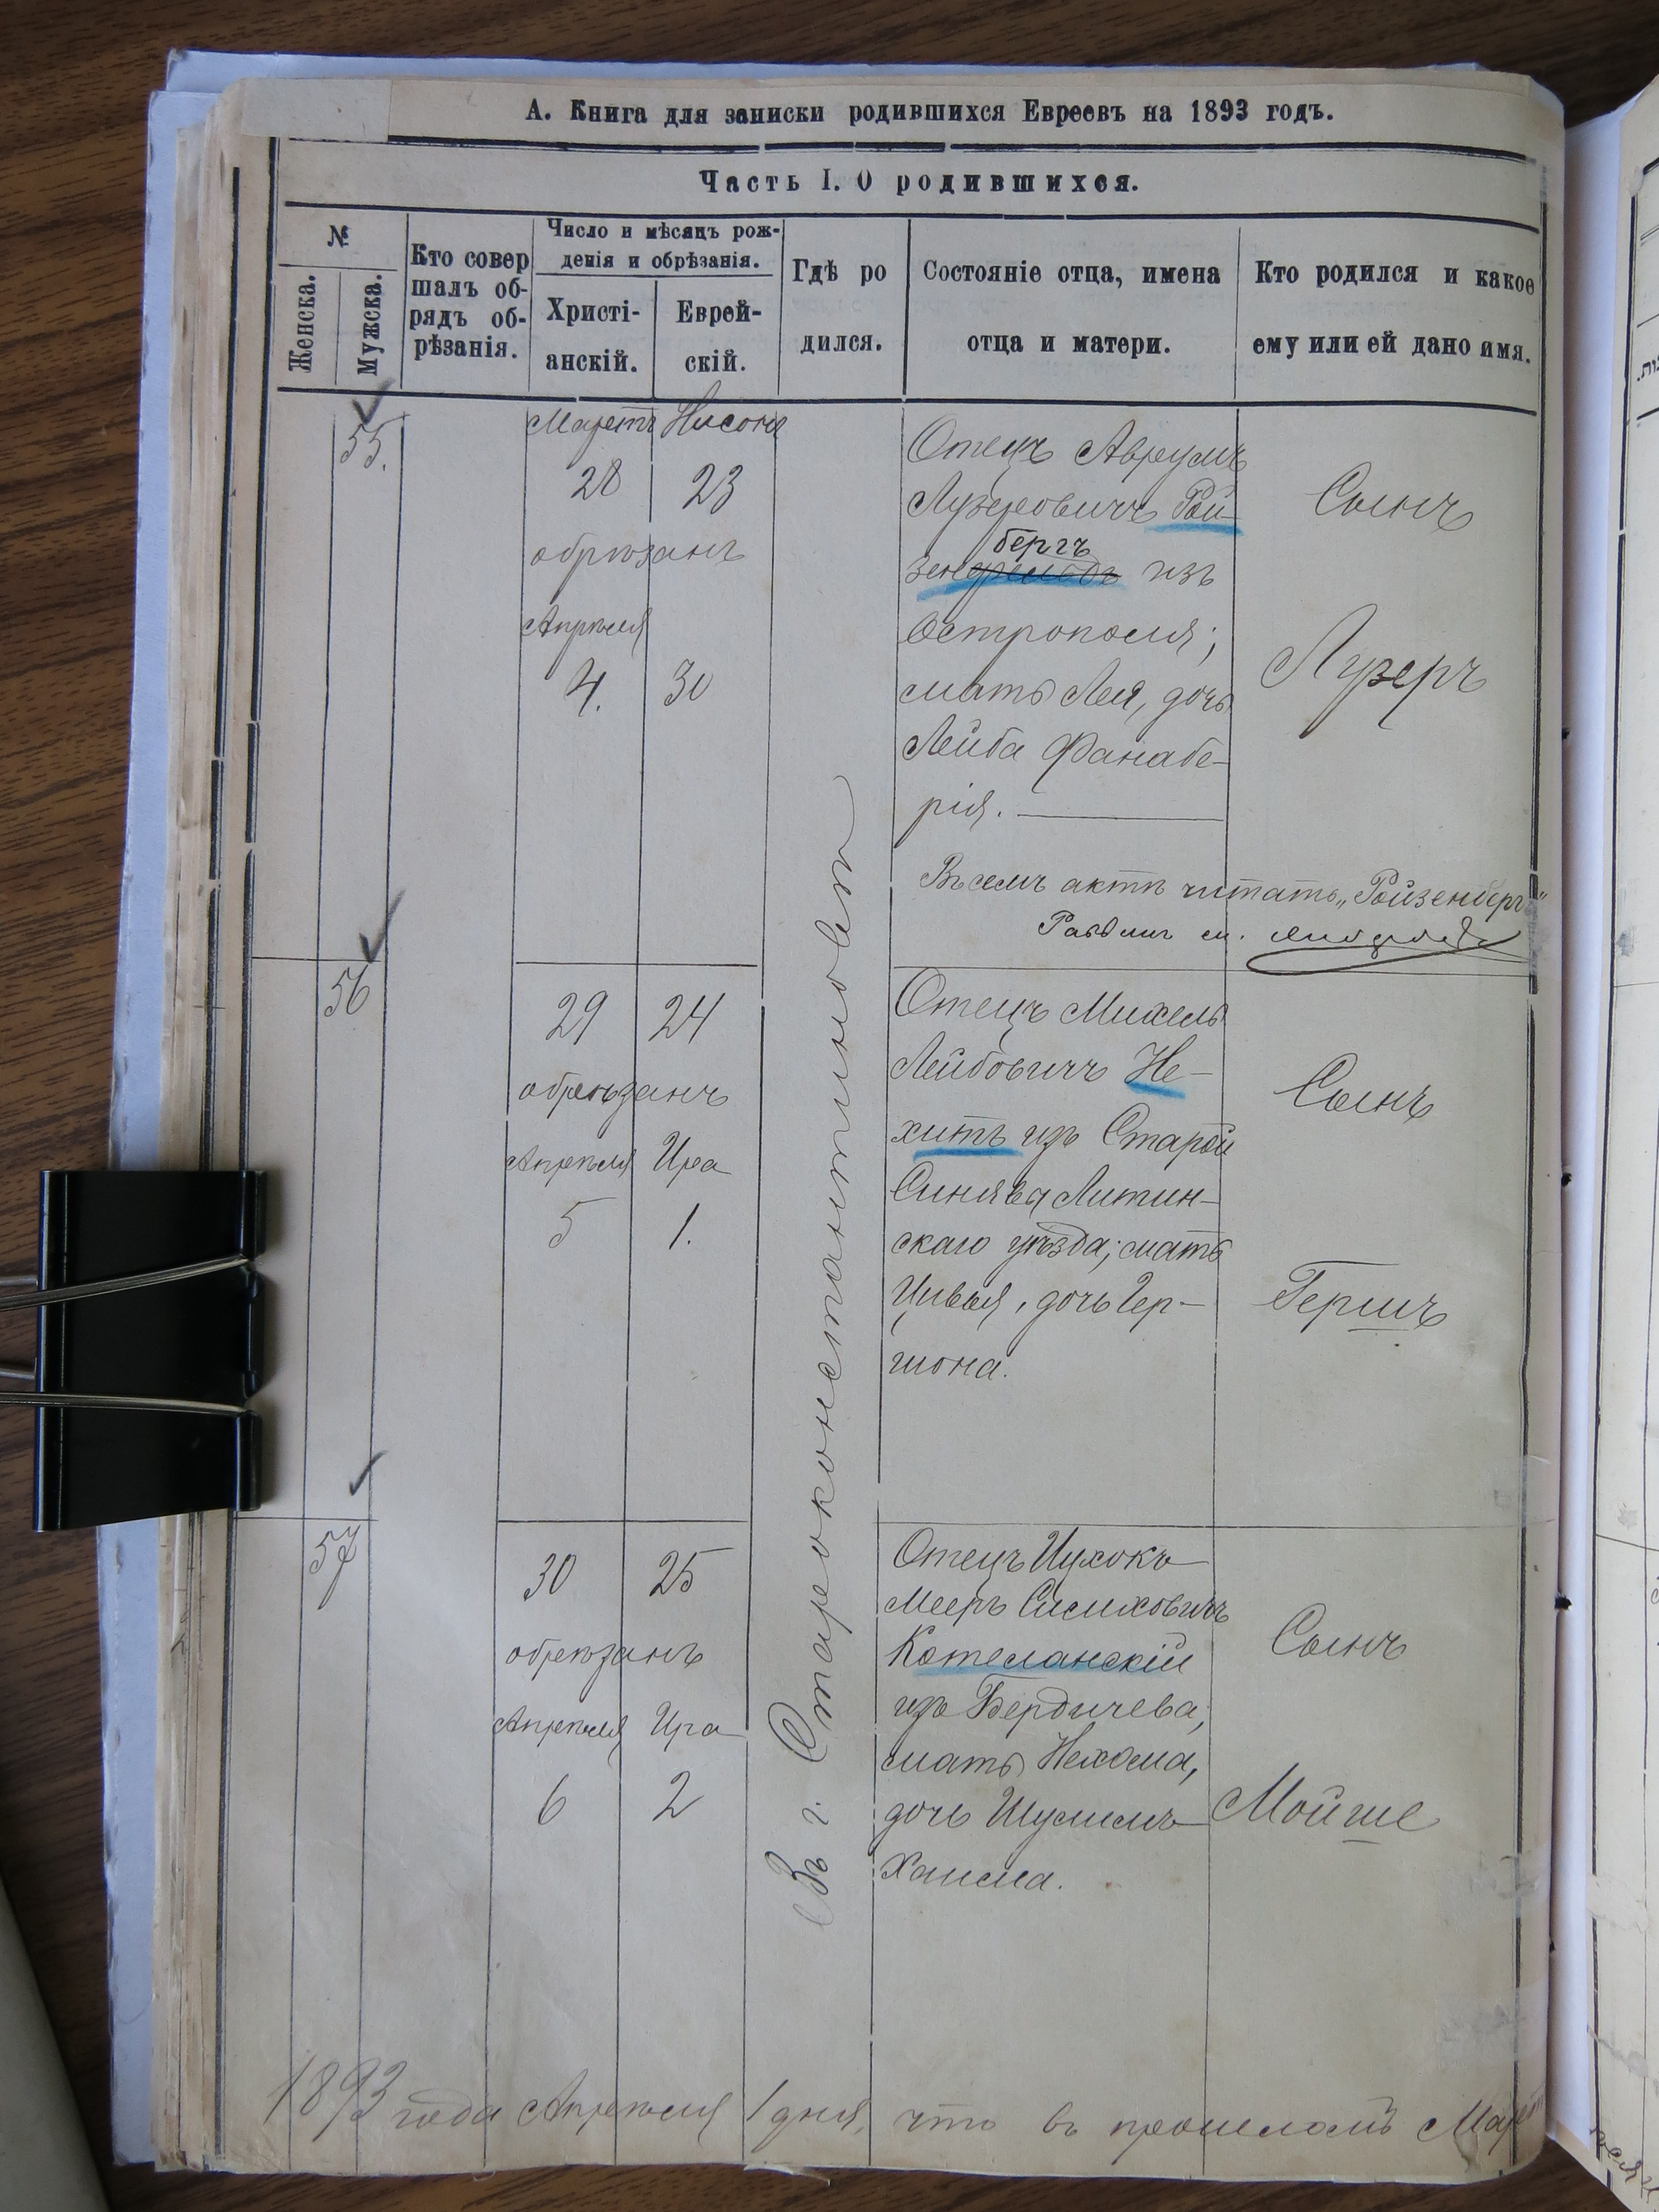 А. Книга для записки родившихся Евреевъ на 1893 годъ.
Часть I. О родившихся.
№
Женска.
Мужска.
Кто совер
шалъ об-
рядъ об-
рѣзанія.
Число и мѣсяцъ рож-
денія и обрѣзанія.
Христі-
анскій.
Еврей-
скій.
Гдѣ ро
дился.
Состояніе отца, имена
отца и матери.
Кто родился и какое
ему или ей дано имя.
55.
Мартъ Нисона
28 23
обрѣзанъ
Апрѣля
4. 30
Отецъ Аврумъ
Лузеровичъ Рой-
бергъ
зенфельдъ изъ
Острополя;
мать Лея, дочь
Лейба Фанабе-
рія.
Сынъ
Лузеръ
Въ семъ актѣ читать „Ройзенбергъ“
Раввинъ
56
29 24
обрѣзанъ
Апрѣля Ира
5 1.
Отецъ Михель
Лейбовичъ Не-
хитъ изъ Старой
Синява Литин-
скаго уѣзда; мать
Цивья, дочь Гер-
шона.
Сынъ
Гершъ
57
30 25
обрѣзанъ
Апрѣля Ира
6 2
Отецъ Ицхокъ
Мееръ Симховичъ
Котелянскій
изъ Бердичева;
мать Нехома,
дочь Шулимъ
Хаима.
Сынъ
Мойше
Въ г. Староконстантиновѣ
1893 года Апрѣля 1 дня, что въ прошломъ Мартѣ